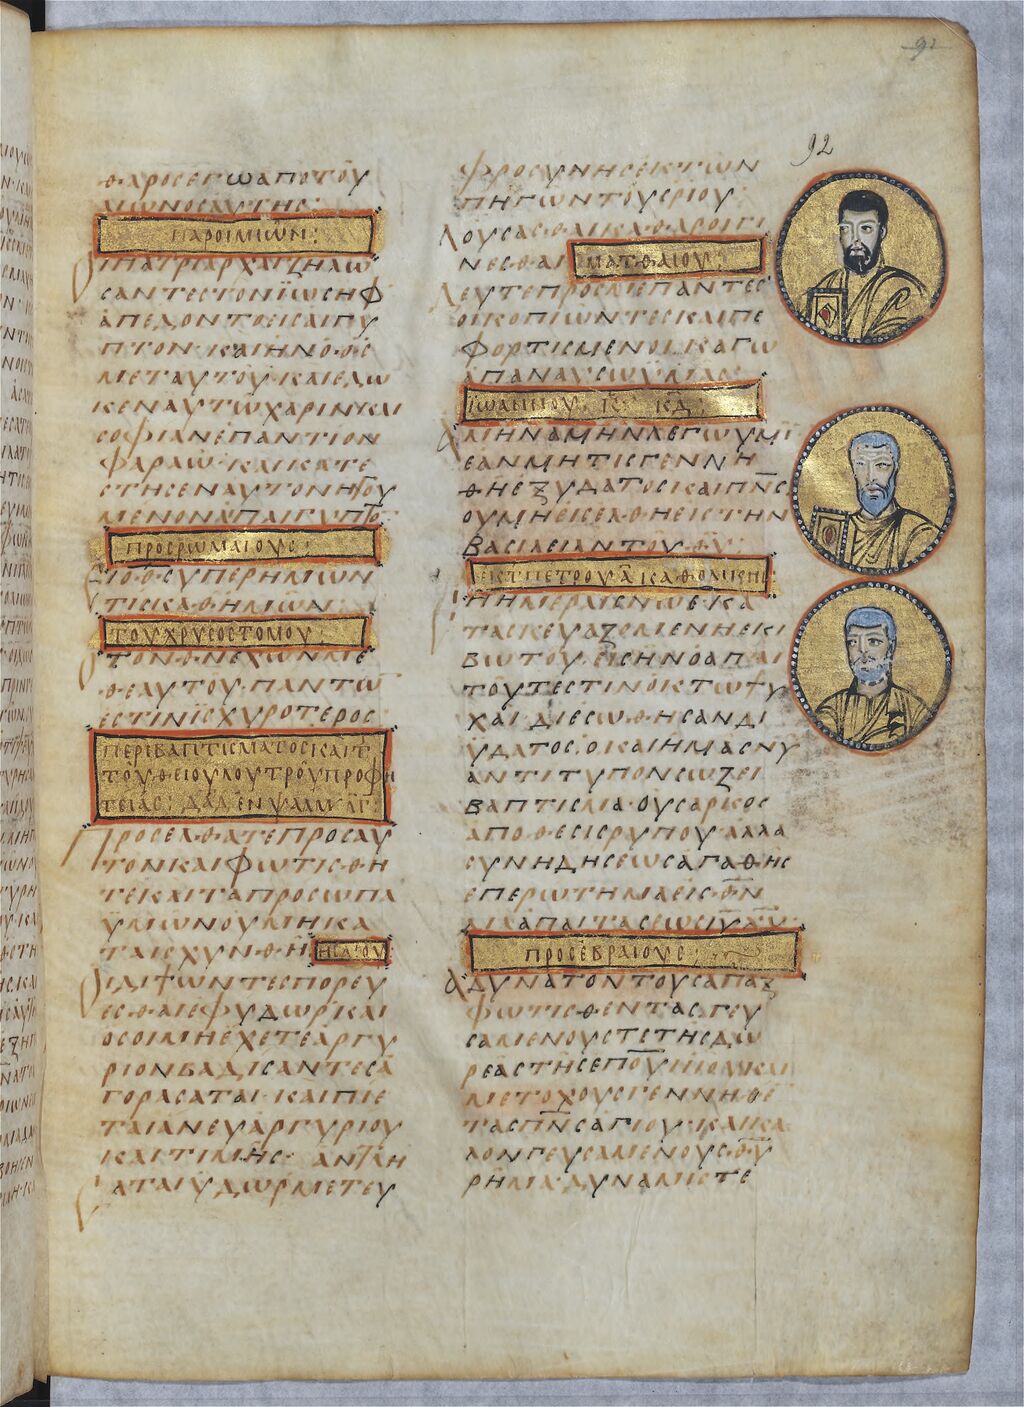 92
θαρσεγωαποτου
αιωνοσαυτησ·
παροιμιων:
Οιπατριαρχαιζηλω
σαντεστονϊωσηφ
απεδοντοεισαιγυ
πτον· καιηνοθσ
μεταυτου· καιεδω
κεναυτωχαρινκαι
σοφιανεπαντιον
φαραω· καικατε
στησεναυτονηγου
μενονεπαιγυπτο
προσρωμαιουσ:
Ειοθσυπερημων
τισκαθημων:
τουχρυσοστομου:
τονθνεχωνμε
θεαυτου· παντω
εστινισχυροτεροσ
περιβαπτισματοσκαιτ
τουθειουλουτρουπροφη
τειασ: δαδ ενψαλμ λγ:
Προσελθατεπροσαυ
τονκαιφωτισθη
τεκαιταπροσωπα
ϋμωνουμηκα
ταισχυνθη ησαιου
Οιδιψωντεσπορευ
εσθαιεφυδωρκαι
οσοιμηεχετεαργυ
ριονβαδισαντεσα
γορασαται· καιπιε
ταιανευαργυριου
καιτιμησ· αντλη
σαταιυδωρμετευ
φροσυνησεκτων
πηγωντουσριου·
Λουσασθαικαθαροιγι
νεσθαι ματθαιου:
Δευτεπροσμεπαντεσ
οικοπιωντεσκαιπε
φορτισμενοι· καγω
απαναυσωυμασ·
ϊωαννου κ κδ:
αμηναμηνλεγωυμι
εανμητισγεννη
θηεξυδατοσκαιπνσ
ουμηεισελθηειστην
βασιλειαντουθυ:
εκτπετρουα καθολικησ
τασκευαζομενησκι
βωτου· εισηνοαπαι
τουτεστινοκτωψυ
χαι· διεσωθησανδι
υδατοσ· οκαιημασνυ
αντιτυπονσωζει
βαπτισμα· ουσαρκοσ
αποθεσισρυπου· αλλα
συνηδησεωσαγαθησ
επερωτημαεισθν
προσεβραιουσ:
αδυνατοντουσαπαξ
φωτισθεντασ· γευ
σαμενουστετησδω
ρεαστησεπουνιουκαι
μετοχουσγεννηθε
τασπνσαγιου· καικα
λονγευσαμενουσθυ
ρημα· δυναμιστε